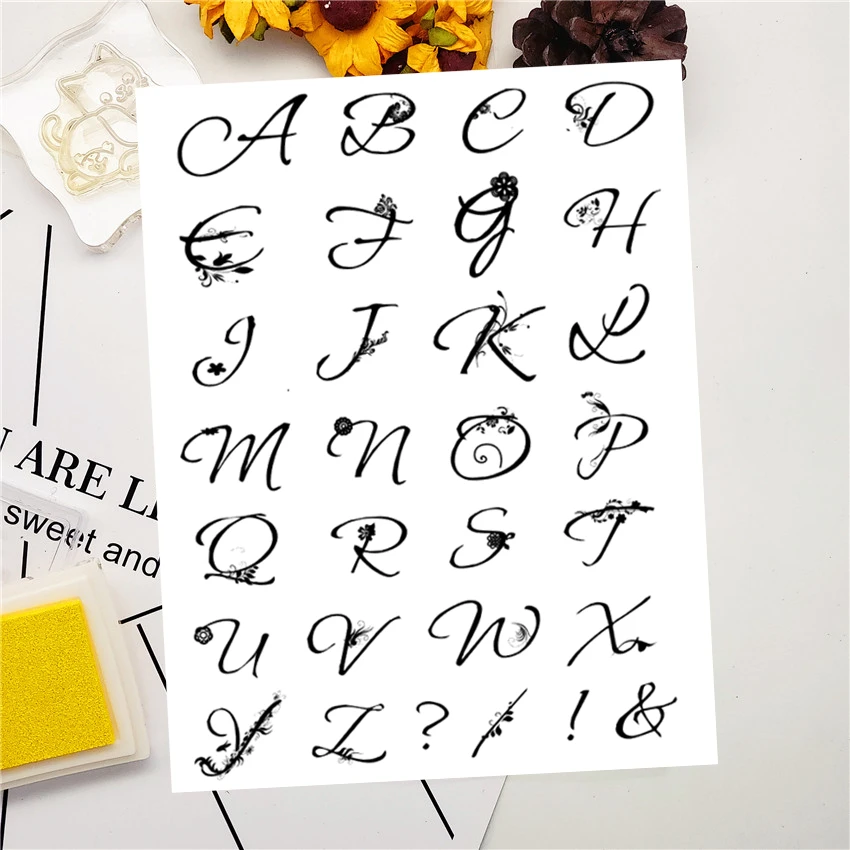 A B C D
E F G H
I J K L
M N O P
Q R S T
U V W X
Y Z ? / ! &
ARE
sweet and